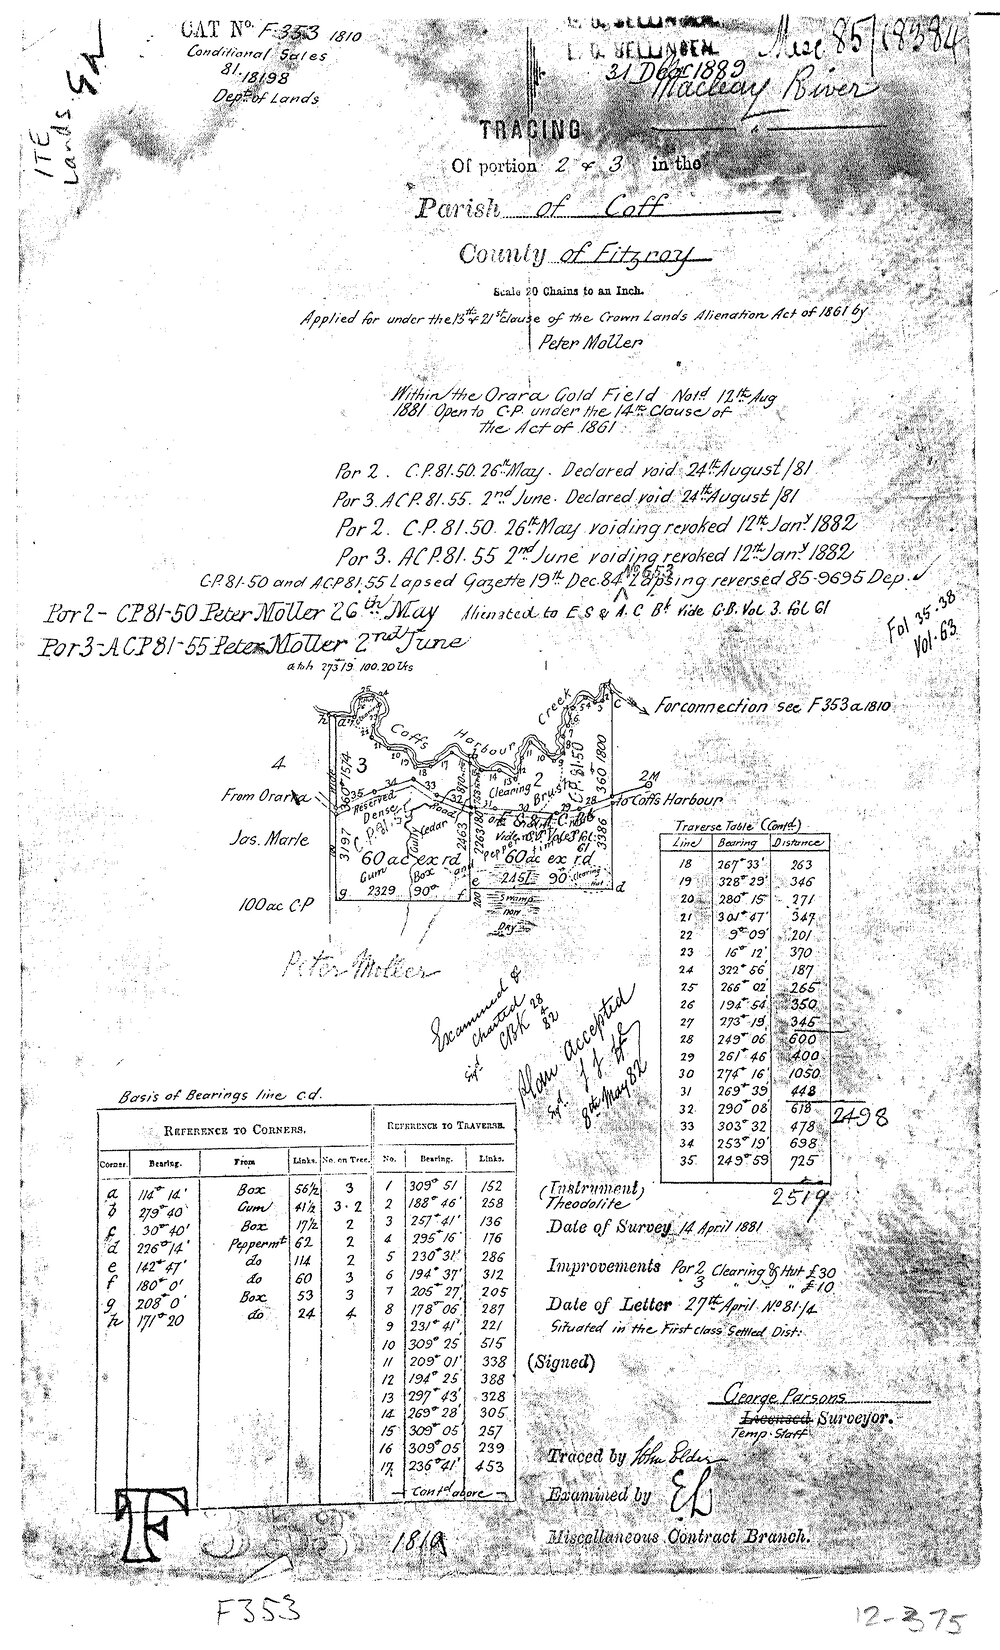 CAT No. F 353 1810
Conditional Sales
81.18198
Dept of Lands
L. O. BELLINGEN.
L. O. BELLINGEN.
31 Dec 1889
Misc 85/18384
Macleay River
Lands
TRACING
Of portion 2 & 3 in the
Parish of Coff
County of Fitzroy
Scale 20 Chains to an Inch.
Applied for under the 13th & 21st Clause of the Crown Lands Alienation Act of 1861 by
Peter Moller
Within the Orara Gold Field Notd 12th Aug
1881 Open to C.P. under the 14th Clause of
the Act of 1861
Por 2. C.P. 81.50. 26th May. Declared void 24th August/81
Por 3. ACP. 81.55. 2nd June. Declared void 24th August/81
Por 2. C.P. 81.50. 26th May voiding revoked 12th Jany 1882
Por 3. ACP. 81.55 2nd June voiding revoked 12th Jany 1882
C.P. 81-50 and ACP 81.55 Lapsed Gazette 19th Dec. 84 No 653 Lapsing reversed 85-9695 Dep.
Por 2 - CP 81-50 Peter Moller 26th May Alienated to E S & A. C Bk vide G.B. Vol 3. Fol 61
Fol 35-38
Vol. 63
Por 3 - ACP 81-55 Peter Moller 2nd June
a to h 273°19' 100.20 lks
Coffs Harbour Creek
For connection see F353a1810
4
3
2
From Orara
to Coffs Harbour
2M
Jas. Marle
100ac C.P
Reserved Road
Dense
Gully
Cedar
Clearing
Brush
C.P. 81.50
360 1574
3197
360 1800
3386
2463
60 ac ex rd
60 ac ex rd
Gum
Box
and
2329 90°
2451 90°
200
Clearing
Hut
Swamp
now
Dry
g
f
e
d
Peter Moller
Examined &
charted
CBK 28/4/82
Plan accepted
8th May 82
Traverse Table (Contd)
Line Bearing Distance
18 267° 33' 263
19 328° 29' 346
20 280° 15' 271
21 301° 47' 347
22 9° 09' 201
23 16° 12' 370
24 322° 56' 187
25 266° 02' 265
26 194° 54' 350
27 273° 19' 345
28 249° 06' 600
29 261° 46' 400
30 274° 16' 1050
31 269° 39' 448
32 290° 08' 618 2498
33 303° 32' 478
34 253° 19' 698
35 249° 59' 725
2519
Basis of Bearings line c.d.
REFERENCE TO CORNERS.
Corner. Bearing. From Links. No. on Tree.
a 114° 14' Box 56½ 3
b 279° 40' Gum 41½ 3·2
c 30° 40' Box 17½ 2
d 226° 14' Peppermt 62 2
e 142° 47' do 114 2
f 180° 0' do 60 3
g 208° 0' Box 53 3
h 171° 20 do 24 4
REFERENCE TO TRAVERSE.
No. Bearing. Links.
1 309° 51 152
2 188° 46' 258
3 257° 41' 136
4 295° 16' 176
5 230° 31' 286
6 194° 37' 312
7 205° 27' 205
8 178° 06' 287
9 231° 41' 221
10 309° 25 515
11 209° 01' 338
12 194° 25' 388
13 297° 43' 328
14 269° 28' 305
15 309° 05' 257
16 309° 05 239
17 236° 41' 453
Contd above
(Instrument)
Theodolite
Date of Survey 14 April 1881
Improvements Por 2 Clearing & Hut £30
3 " " " £10
Date of Letter 27th April No 81/4
Situated in the First class Settled Dist:
(Signed)
George Parsons
Licensed Surveyor.
Temp. Staff
Traced by John Elder
Examined by
Miscellaneous Contract Branch.
F
1810
F353
12-375